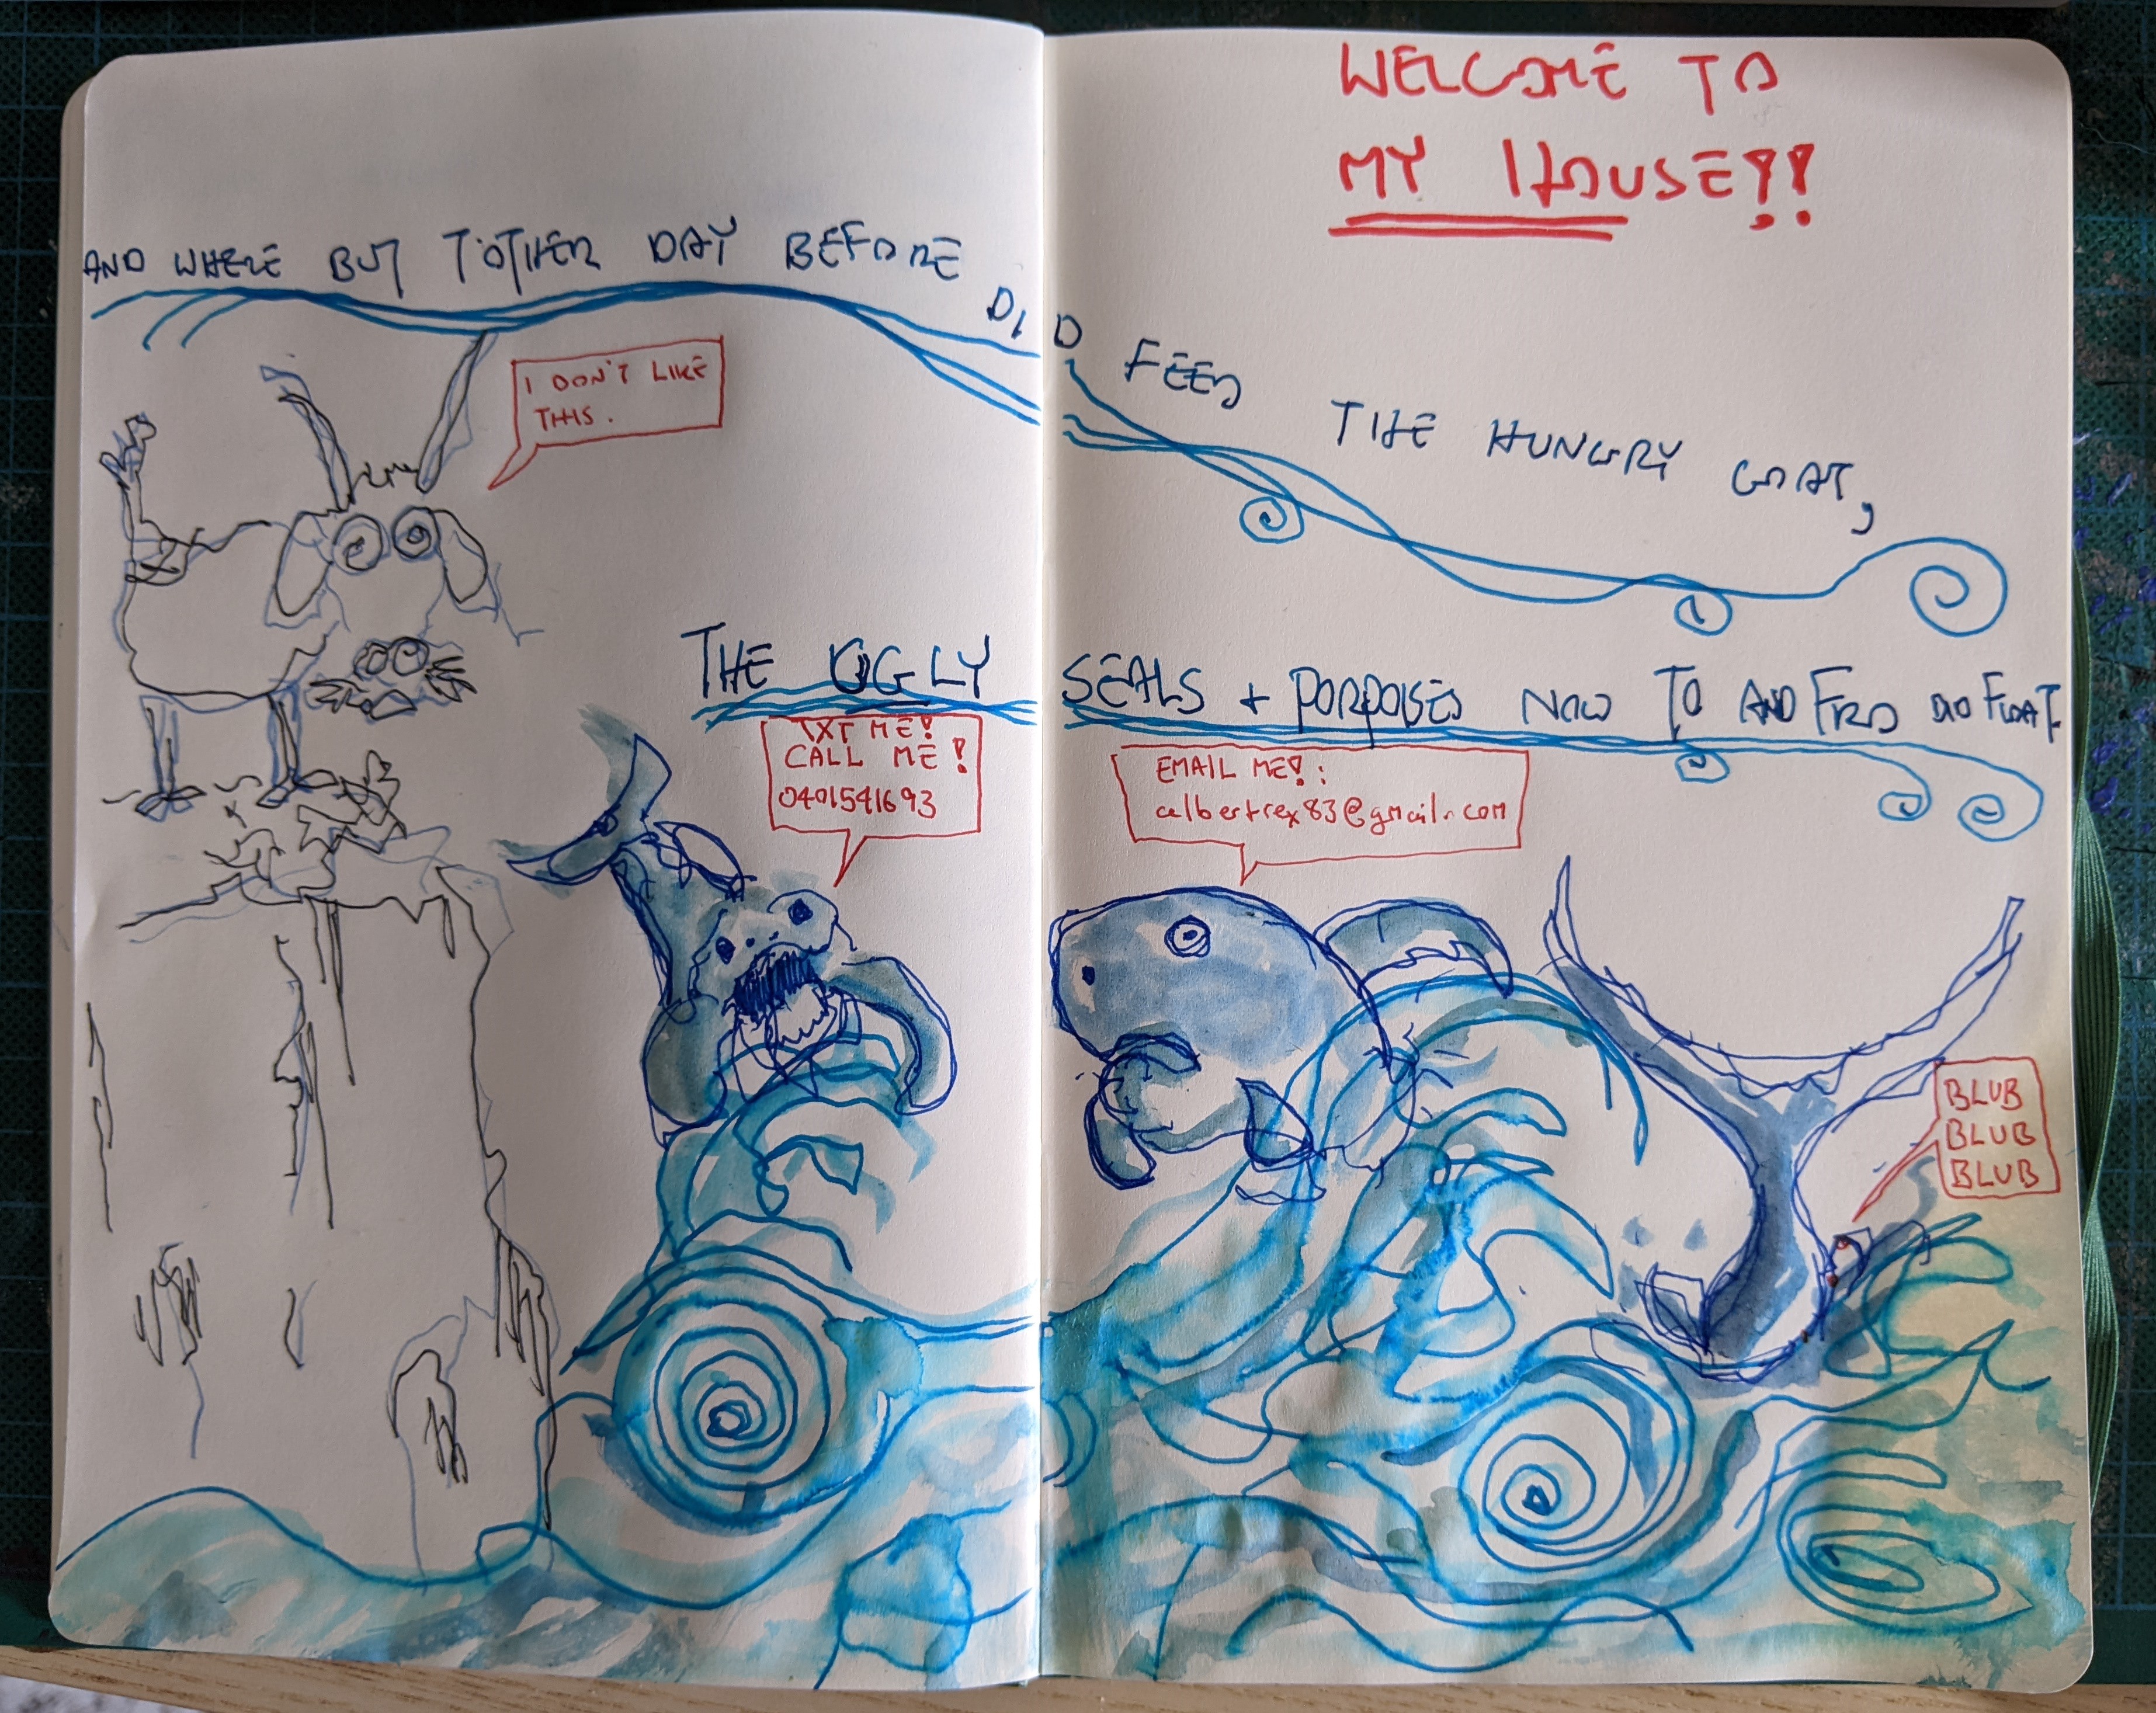 WELCOME TO
MY HOUSE!!
AND WHERE BUT TOTHER DAY BEFORE DID FEED THE HUNGRY GOAT,
I DON'T LIKE
THIS.
THE UGLY SEALS + PORPOISES NOW TO AND FRO DO FLOAT.
TXT ME!
CALL ME!
0401541693
EMAIL ME!:
calbertrex83@gmail.com
BLUB
BLUB
BLUB